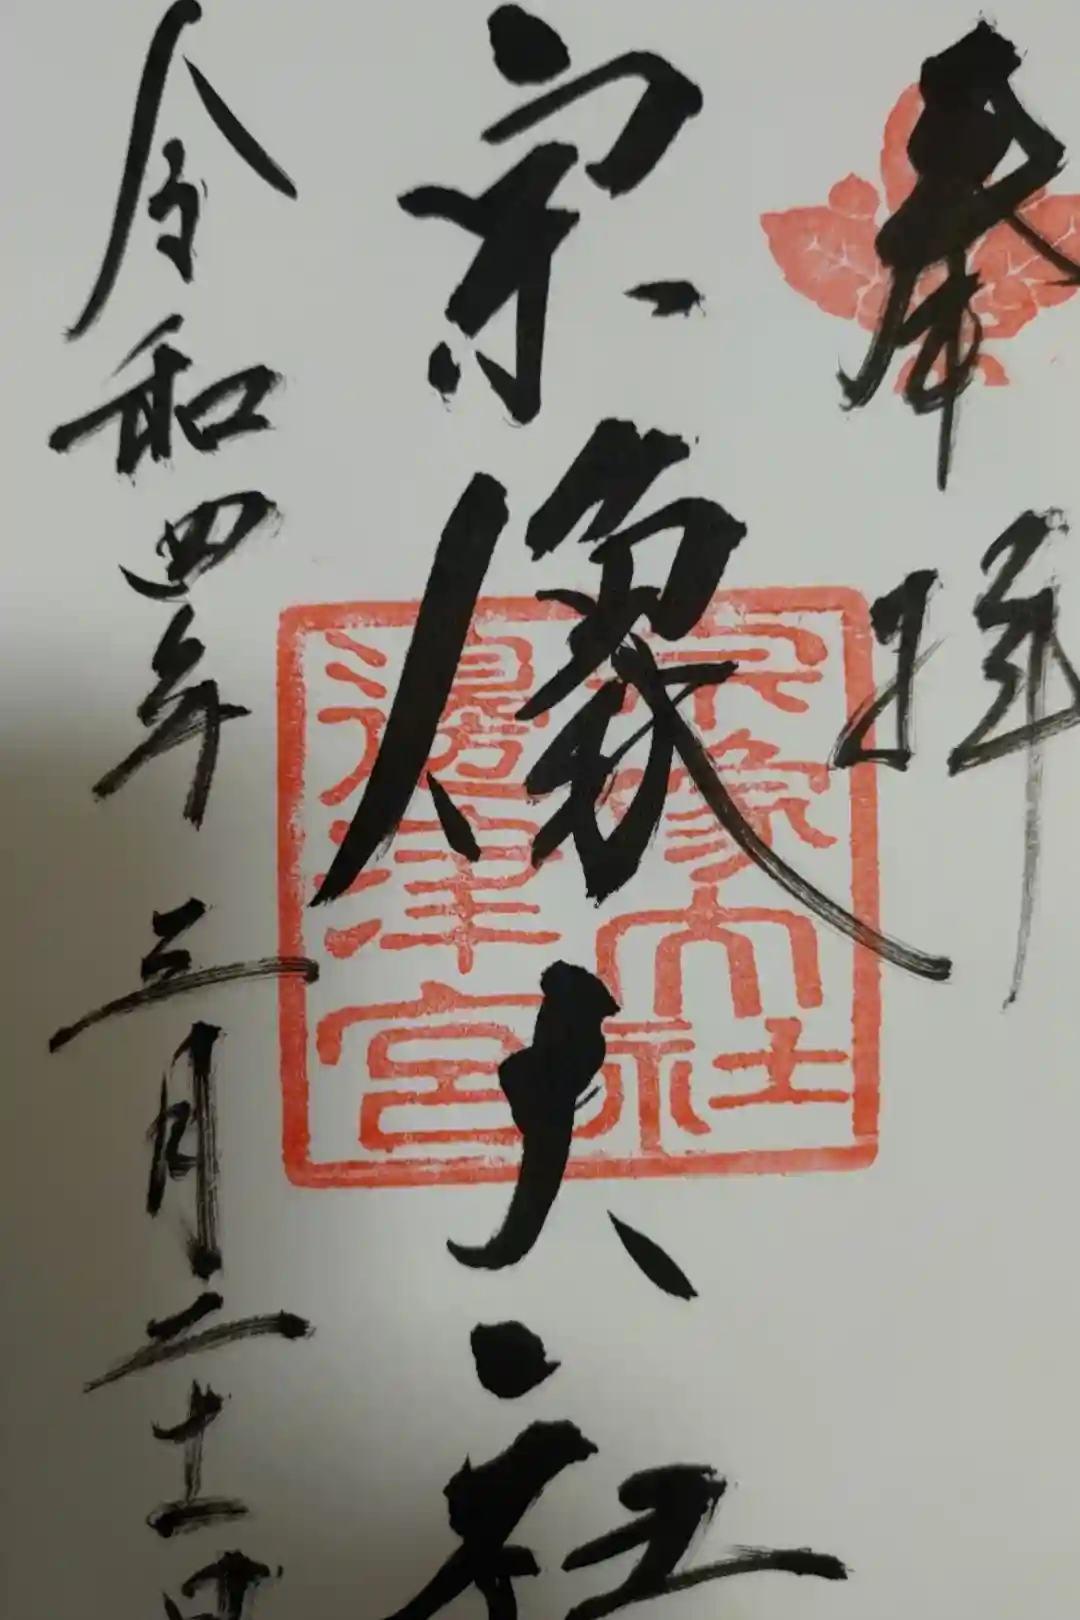 奉拝
宗像大社
令和四年三月二十一日
宗像大社
邊津宮